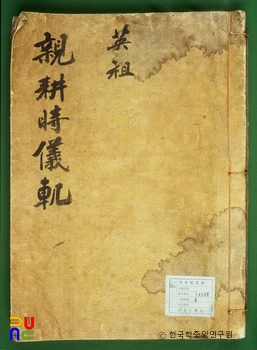 英祖
親耕時儀軌
© 한국학중앙연구원